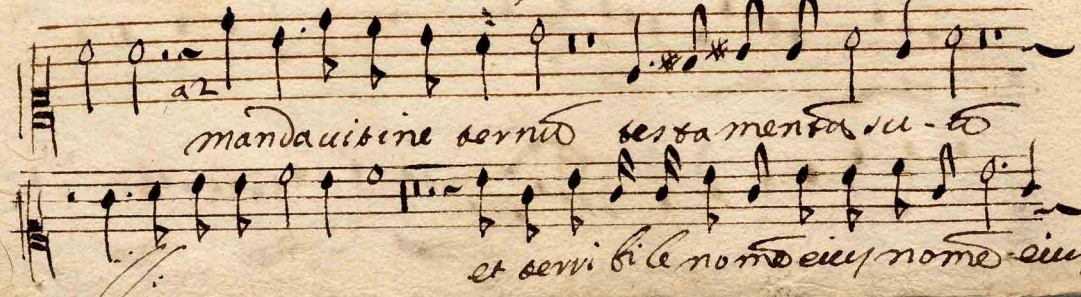 a2
mandavit ine ternū testamentū su-ū
et terri bile nomē eius nomē eius